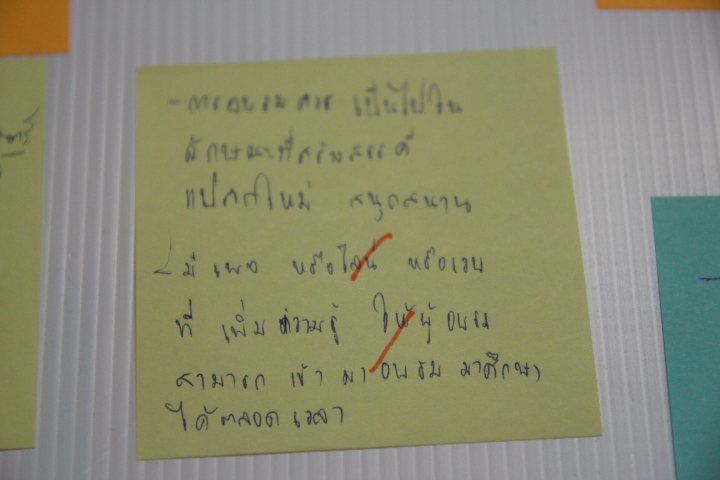 - การอบรมควร เป็นไปใน
ลักษณะที่สร้างสรรค์
แปลกใหม่ สนุกสนาน
- มี เพจ หรือไลน์ หรือเวบ
ที่ เพิ่ม ความรู้ ให้ผู้ อบรม
สามารถ เข้า มา อบรม มาศึกษา
ได้ตลอด เวลา